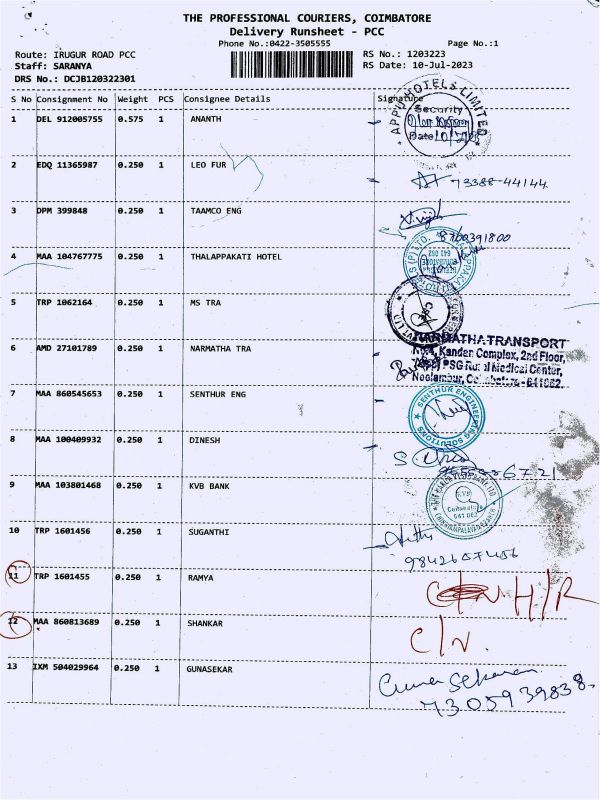 THE PROFESSIONAL COURIERS, COIMBATORE
Delivery Runsheet - PCC
Phone No.:0422-3505555
Page No.:1
Route: IRUGUR ROAD PCC
RS No.: 1203223
Staff: SARANYA
RS Date: 10-Jul-2023
DRS No.: DCJB120322301
S No Consignment No Weight PCS Consignee Details Signature
1 DEL 912005755 0.575 1 ANANTH
APPU HOTELS LIMITED
Security
Date
2 EDQ 11365987 0.250 1 LEO FUR
73388-44144
3 DPM 399848 0.250 1 TAAMCO ENG
8760391800
4 MAA 104767775 0.250 1 THALAPPAKATI HOTEL
641 062
5 TRP 1062164 0.250 1 MS TRA
6 AMD 27101789 0.250 1 NARMATHA TRA
NARMATHA TRANSPORT
Kandan Complex, 2nd Floor,
PSG Rural Medical Center,
Neelambur, Coimbatore - 641062.
7 MAA 860545653 0.250 1 SENTHUR ENG
SENTHUR ENGINEERING SOLUTIONS
8 MAA 100409932 0.250 1 DINESH
9 MAA 103801468 0.250 1 KVB BANK
KVB
Coimbatore
641 062
10 TRP 1601456 0.250 1 SUGANTHI
11 TRP 1601455 0.250 1 RAMYA
H/R
12 MAA 860813689 0.250 1 SHANKAR
C/N.
13 IXM 504029964 0.250 1 GUNASEKAR
Guna Sekaran
7305939838.